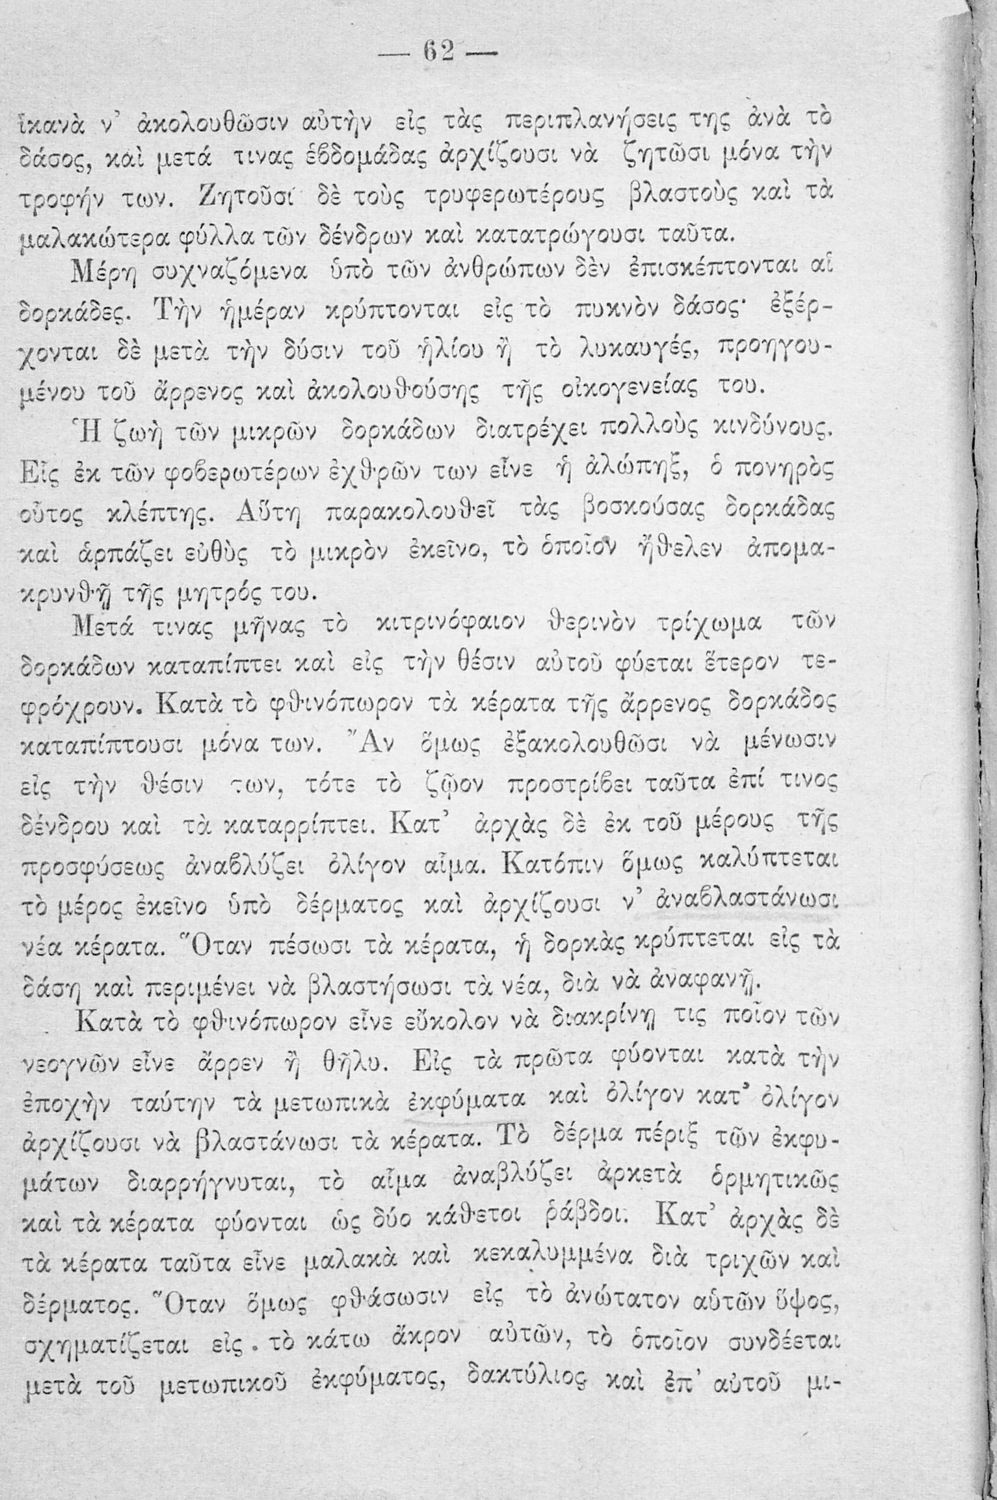 — 62 —
ἱκανὰ ν’ ἀκολουθῶσιν αὐτὴν εἰς τὰς περιπλανήσεις της ἀνὰ τὸ
δάσος, καὶ μετά τινας ἑβδομάδας ἀρχίζουσι νὰ ζητῶσι μόνα τὴν
τροφήν των. Ζητοῦσι δὲ τοὺς τρυφερωτέρους βλαστοὺς καὶ τὰ
μαλακώτερα φύλλα τῶν δένδρων καὶ κατατρώγουσι ταῦτα.
Μέρη συχναζόμενα ὑπὸ τῶν ἀνθρώπων δὲν ἐπισκέπτονται αἱ
δορκάδες. Τὴν ἡμέραν κρύπτονται εἰς τὸ πυκνὸν δάσος· ἐξέρ-
χονται δὲ μετὰ τὴν δύσιν τοῦ ἡλίου ἢ τὸ λυκαυγές, προηγου-
μένου τοῦ ἄρρενος καὶ ἀκολουθούσης τῆς οἰκογενείας του.
Ἡ ζωὴ τῶν μικρῶν δορκάδων διατρέχει πολλοὺς κινδύνους.
Εἷς ἐκ τῶν φοβερωτέρων ἐχθρῶν των εἶνε ἡ ἀλώπηξ, ὁ πονηρὸς
οὗτος κλέπτης. Αὕτη παρακολουθεῖ τὰς βοσκούσας δορκάδας
καὶ ἁρπάζει εὐθὺς τὸ μικρὸν ἐκεῖνο, τὸ ὁποῖον ἤθελεν ἀπομα-
κρυνθῇ τῆς μητρός του.
Μετά τινας μῆνας τὸ κιτρινόφαιον θερινὸν τρίχωμα τῶν
δορκάδων καταπίπτει καὶ εἰς τὴν θέσιν αὐτοῦ φύεται ἕτερον τε-
φρόχρουν. Κατὰ τὸ φθινόπωρον τὰ κέρατα τῆς ἄρρενος δορκάδος
καταπίπτουσι μόνα των. Ἂν ὅμως ἐξακολουθῶσι νὰ μένωσιν
εἰς τὴν θέσιν των, τότε τὸ ζῷον προστρίβει ταῦτα ἐπί τινος
δένδρου καὶ τὰ καταρρίπτει. Κατ’ ἀρχὰς δὲ ἐκ τοῦ μέρους τῆς
προσφύσεως ἀναβλύζει ὀλίγον αἷμα. Κατόπιν ὅμως καλύπτεται
τὸ μέρος ἐκεῖνο ὑπὸ δέρματος καὶ ἀρχίζουσι ν’ ἀναβλαστάνωσι
νέα κέρατα. Ὅταν πέσωσι τὰ κέρατα, ἡ δορκὰς κρύπτεται εἰς τὰ
δάση καὶ περιμένει νὰ βλαστήσωσι τὰ νέα, διὰ νὰ ἀναφανῇ.
Κατὰ τὸ φθινόπωρον εἶνε εὔκολον νὰ διακρίνῃ τις ποῖον τῶν
νεογνῶν εἶνε ἄρρεν ἢ θῆλυ. Εἰς τὰ πρῶτα φύονται κατὰ τὴν
ἐποχὴν ταύτην τὰ μετωπικὰ ἐκφύματα καὶ ὀλίγον κατ’ ὀλίγον
ἀρχίζουσι νὰ βλαστάνωσι τὰ κέρατα. Τὸ δέρμα πέριξ τῶν ἐκφυ-
μάτων διαρρήγνυται, τὸ αἷμα ἀναβλύζει ἀρκετὰ ὁρμητικῶς
καὶ τὰ κέρατα φύονται ὡς δύο κάθετοι ῥάβδοι. Κατ’ ἀρχὰς δὲ
τὰ κέρατα ταῦτα εἶνε μαλακὰ καὶ κεκαλυμμένα διὰ τριχῶν καὶ
δέρματος. Ὅταν ὅμως φθάσωσιν εἰς τὸ ἀνώτατον αὑτῶν ὕψος,
σχηματίζεται εἰς τὸ κάτω ἄκρον αὐτῶν, τὸ ὁποῖον συνδέεται
μετὰ τοῦ μετωπικοῦ ἐκφύματος, δακτύλιος καὶ ἐπ’ αὐτοῦ μι-